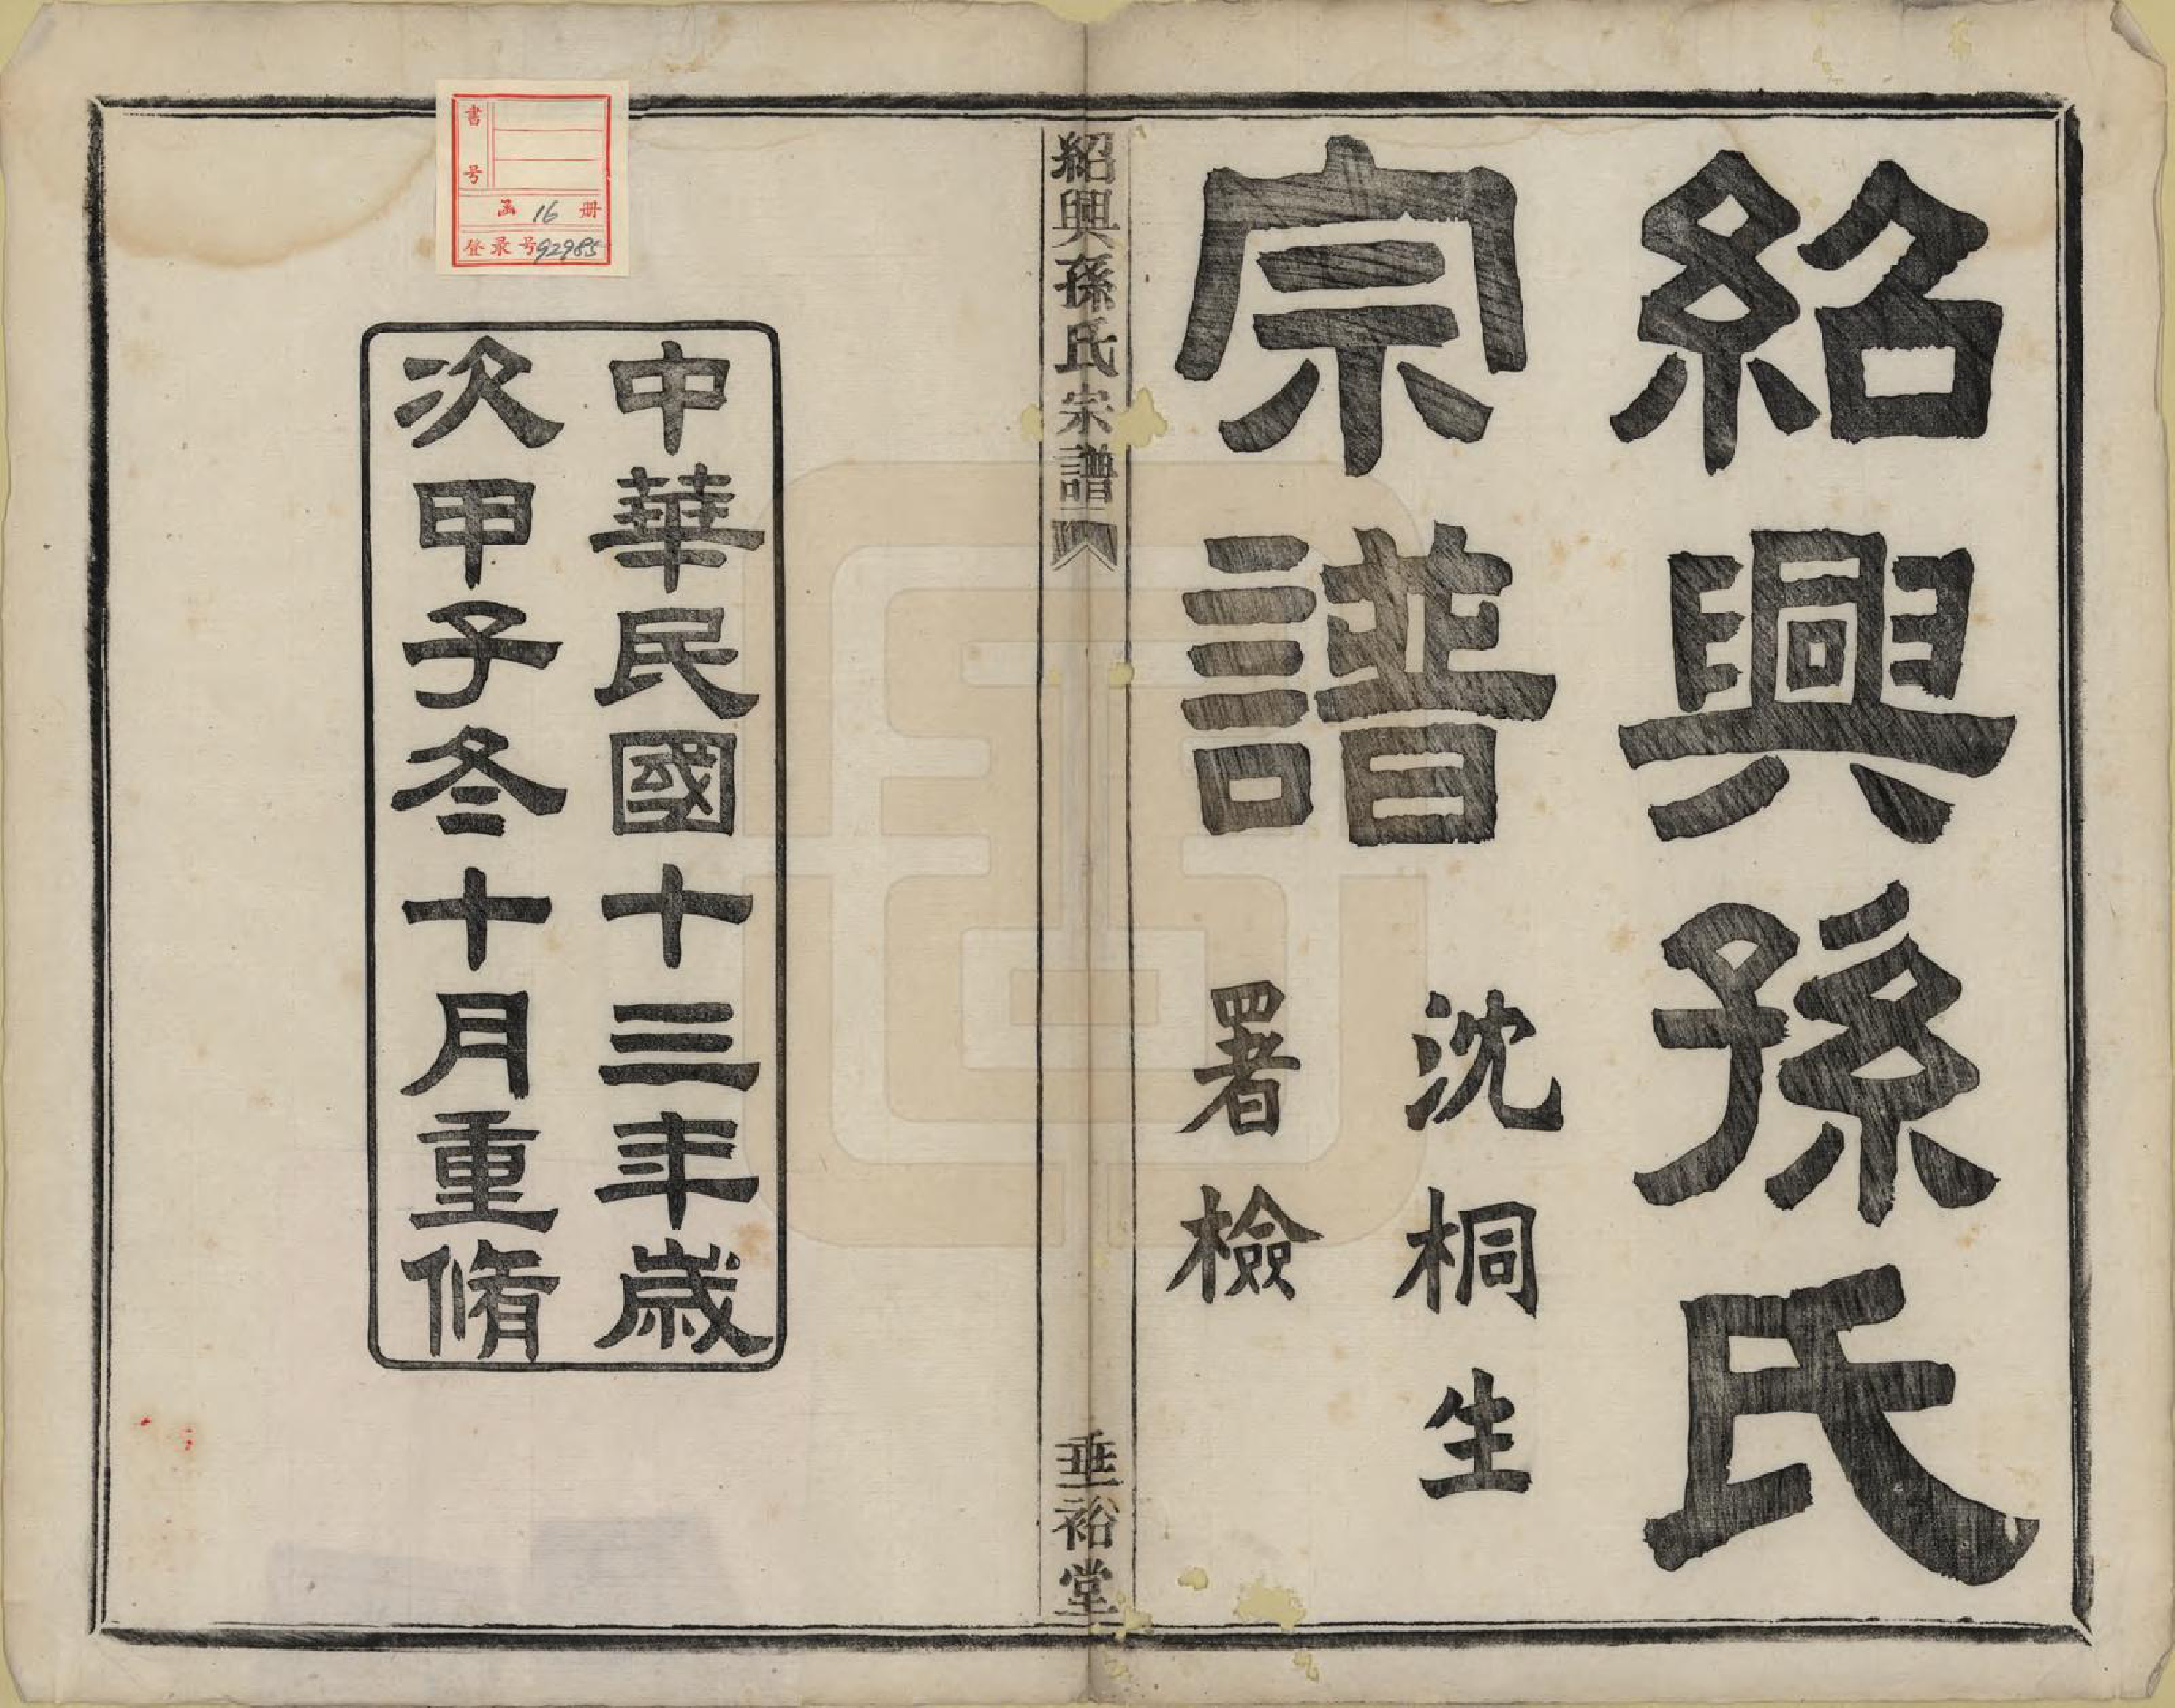 紹興孫氏
宗譜
沈桐生
署檢
紹興孫氏宗譜
垂裕堂
中華民國十三年歲
次甲子冬十月重脩
書号
函 16 册
登录号 92985